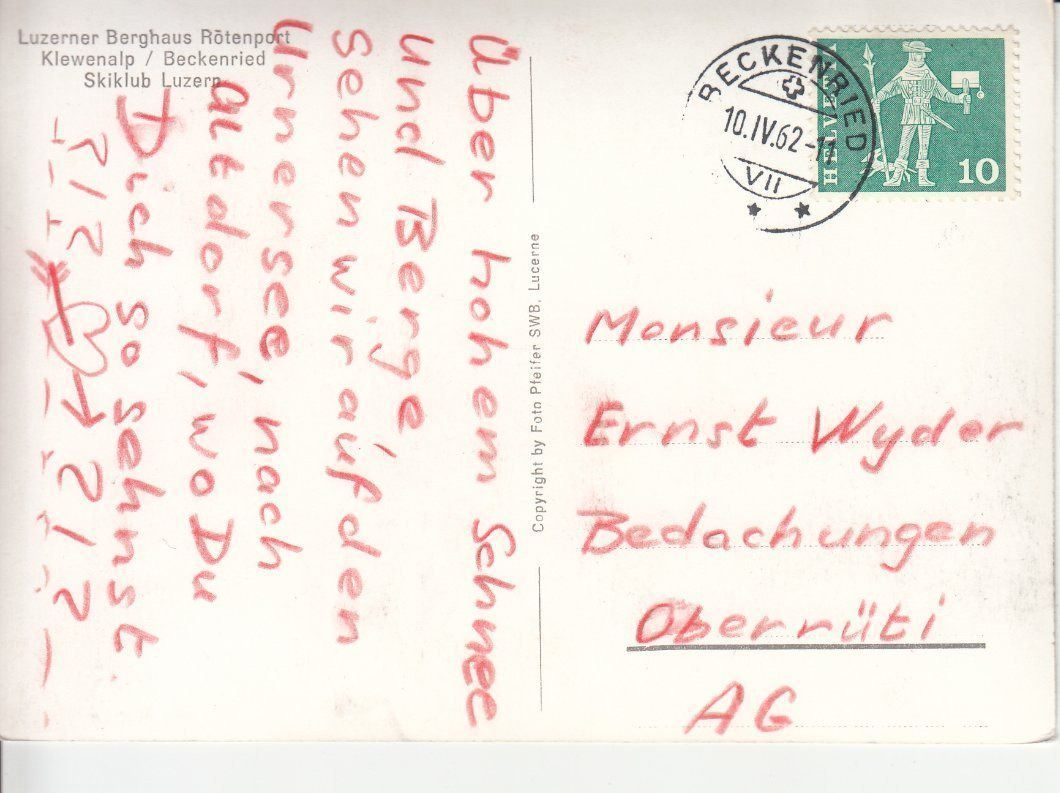 Luzerner Berghaus Rötenport
Klewenalp / Beckenried
Skiklub Luzern
Über hohem Schnee
und Berge
sehen wir auf den
Urnersee, nach
altdorf, wo Du
Dich so sehnst
Copyright by Foto Pfeifer SWB, Lucerne
BECKENRIED
10.IV.62-11
VII
HELVETIA
10
Monsieur
Ernst Wyder
Bedachungen
Oberrüti
AG